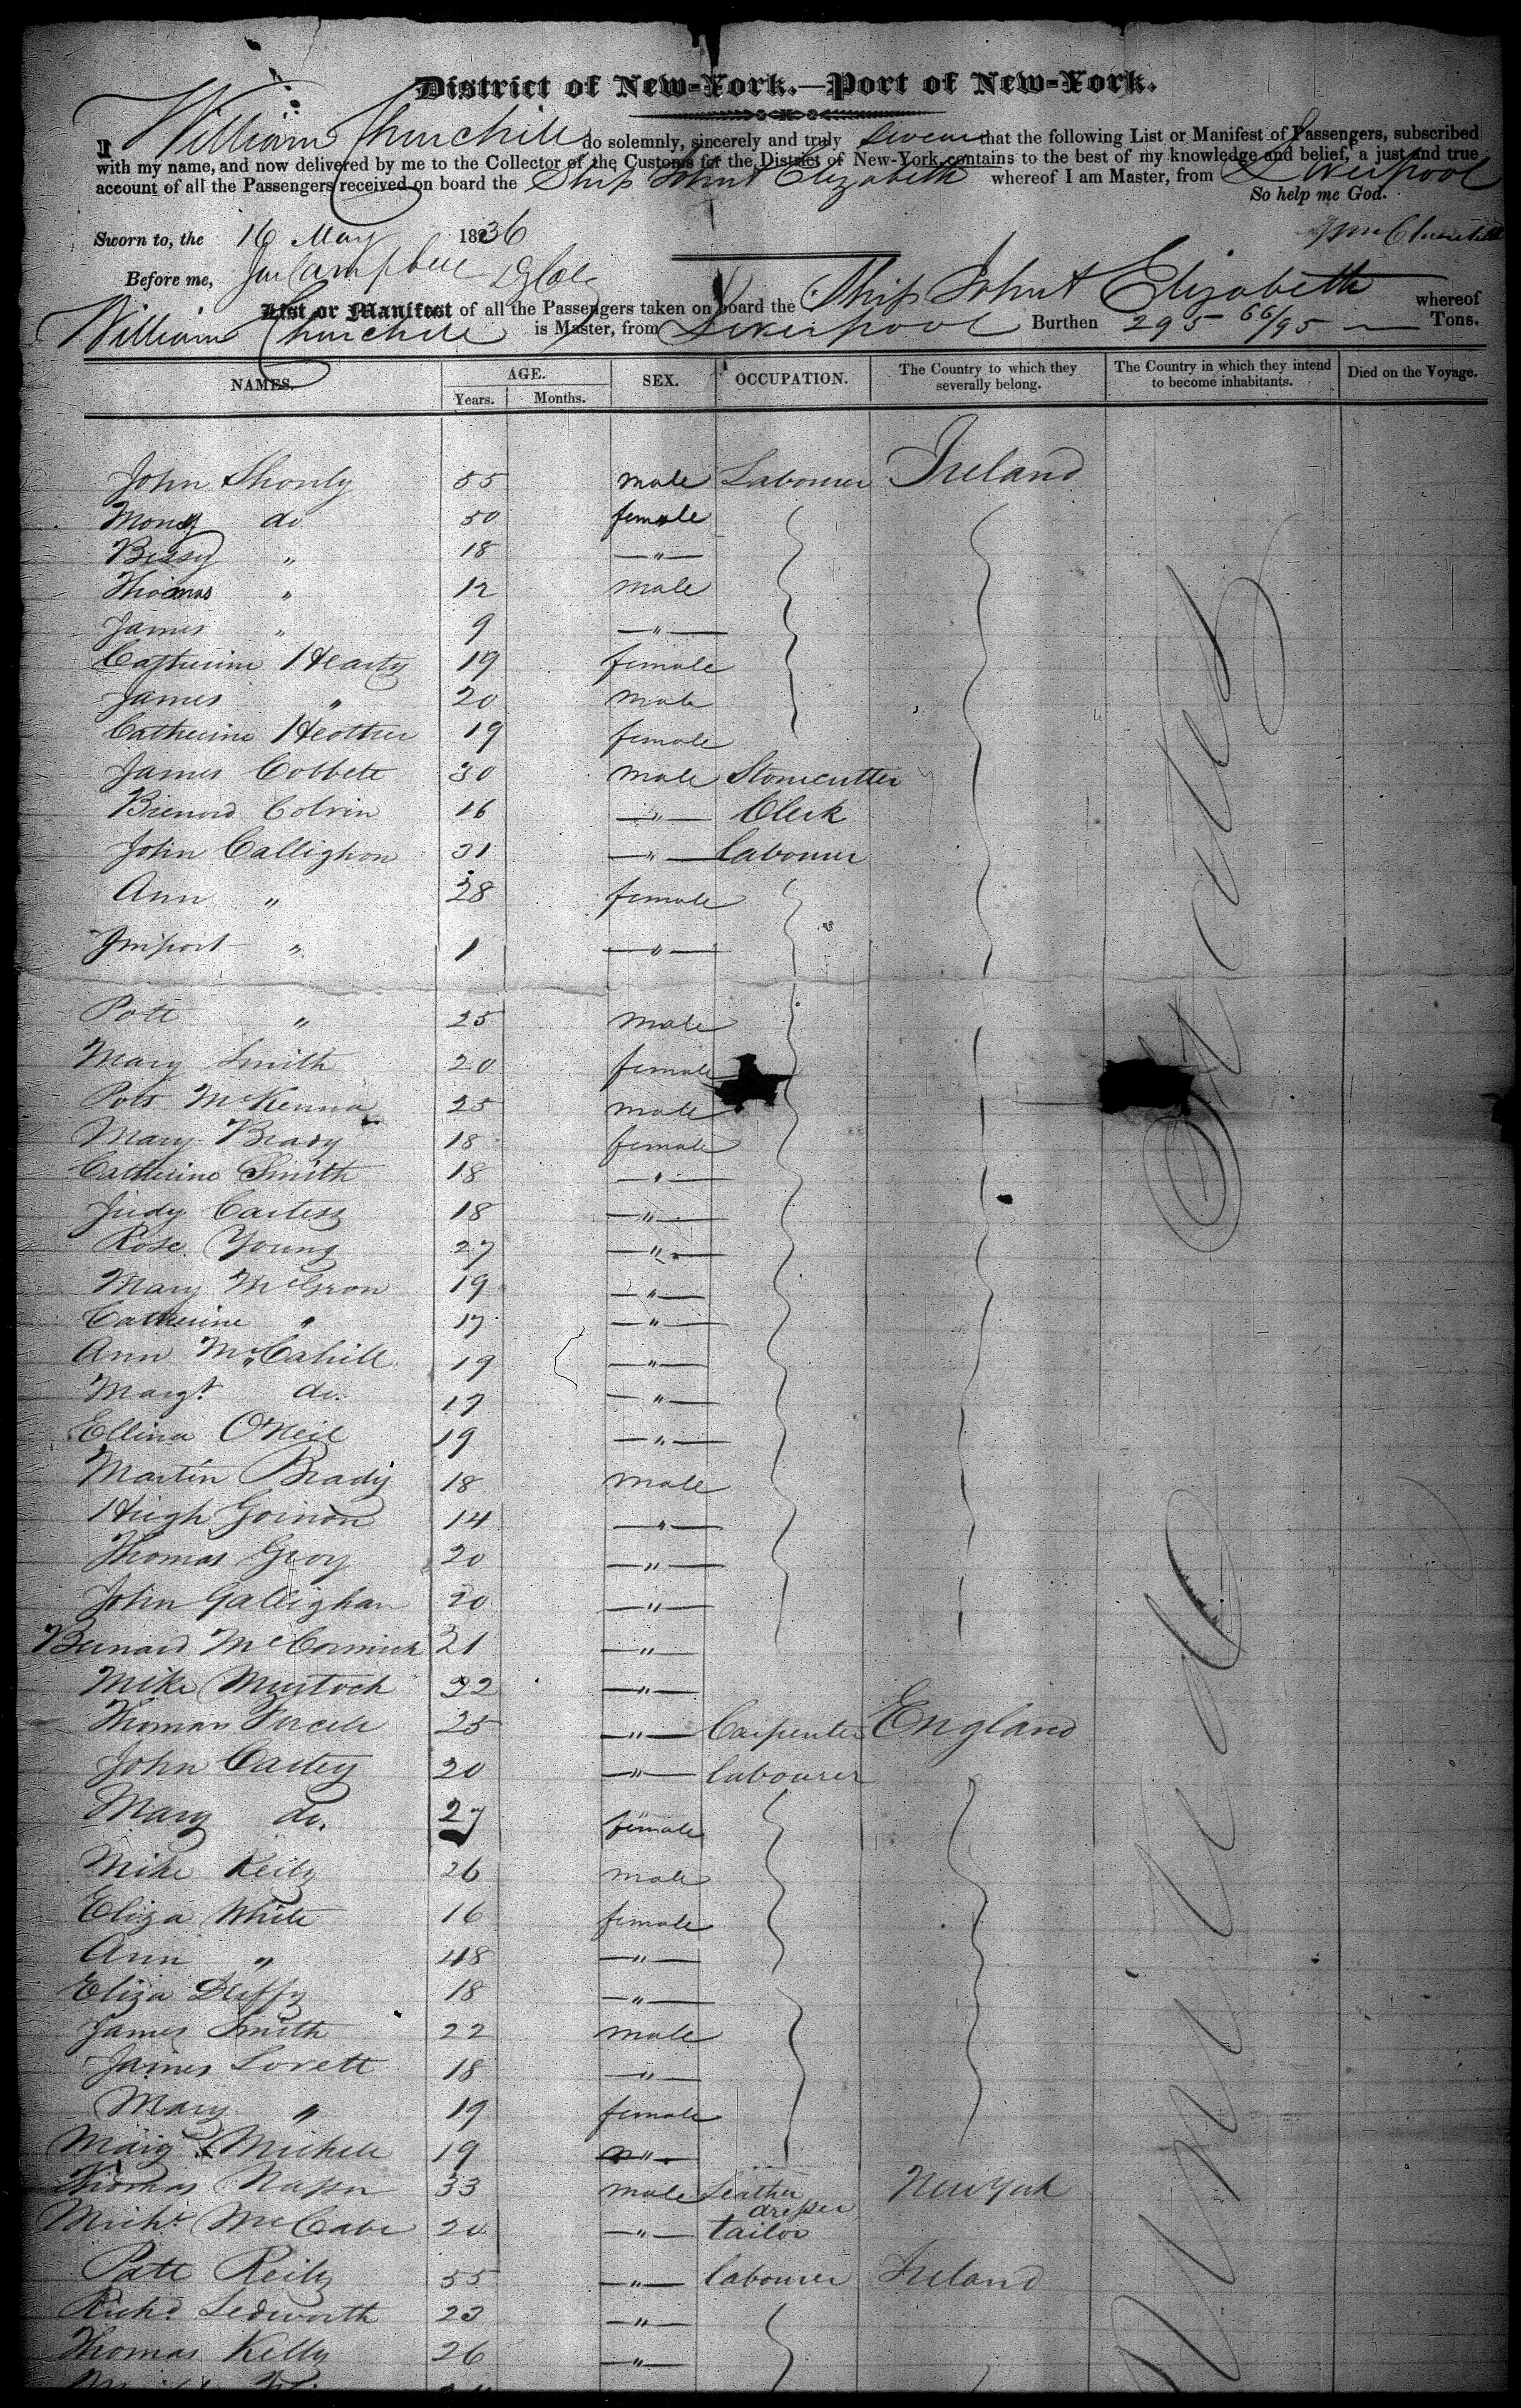 District of New-York.—Port of New-York.
I William Churchill do solemnly, sincerely and truly swear that the following List or Manifest of Passengers, subscribed
with my name, and now delivered by me to the Collector of the Customs for the District of New-York, contains to the best of my knowledge and belief, a just and true
account of all the Passengers received on board the Ship John & Elizabeth whereof I am Master, from Liverpool
So help me God.
Sworn to, the 16 May 1836 Wm Churchill
Before me, Campbell
List or Manifest of all the Passengers taken on board the Ship John & Elizabeth whereof
William Churchill is Master, from Liverpool Burthen 295 66/95 Tons.
NAMES. AGE. SEX. OCCUPATION. The Country to which they severally belong. The Country in which they intend to become inhabitants. Died on the Voyage.
Years. Months.
John Shonly 55 male Labourer Ireland
do 50 female
Bessy " 18 — " —
Thomas " 12 male
James " 9 — " —
Catherine Hearty 19 female
James " 20 male
Catherine 19 female
James Cobbett 30 male Stonecutter
Colvin 16 — " — Clerk
John Callighon 31 — " — Labourer
Ann " 28 female
" 1 — " —
Patt " 25 male
Mary Smith 20 female
McKenna 25 male
Mary Brady 18 female
Catherine Smith 18 — " —
Judy 18 — " —
Rose Young 27 — " —
Mary 19 — " —
Catherine " 17 — " —
Ann McCahill 19 — " —
Margt do. 17 — " —
Ellina ONeil 19 — " —
Martin Brady 18 male
Hugh 14 — " —
Thomas Gray 20 — " —
John Gallighan 20 — " —
Bernard McCormick 21 — " —
Mike 22 — " —
Thomas 25 — " — Carpenter England
John Carley 20 — " — labourer
Mary do. 27 female
Mike Reily 26 male
Eliza White 16 female
Ann " 18 — " —
Eliza Duffy 18 — " —
James Smith 22 male
James Lovett 18 — " —
Mary " 19 female
19 — " —
Thomas 33 male Leather dresser New York
Michl McCabe 20 — " — tailor
Patt Reily 55 — " — labourer Ireland
Richd Ledworth 23 — " —
Thomas Kelly 26 — " —
United States